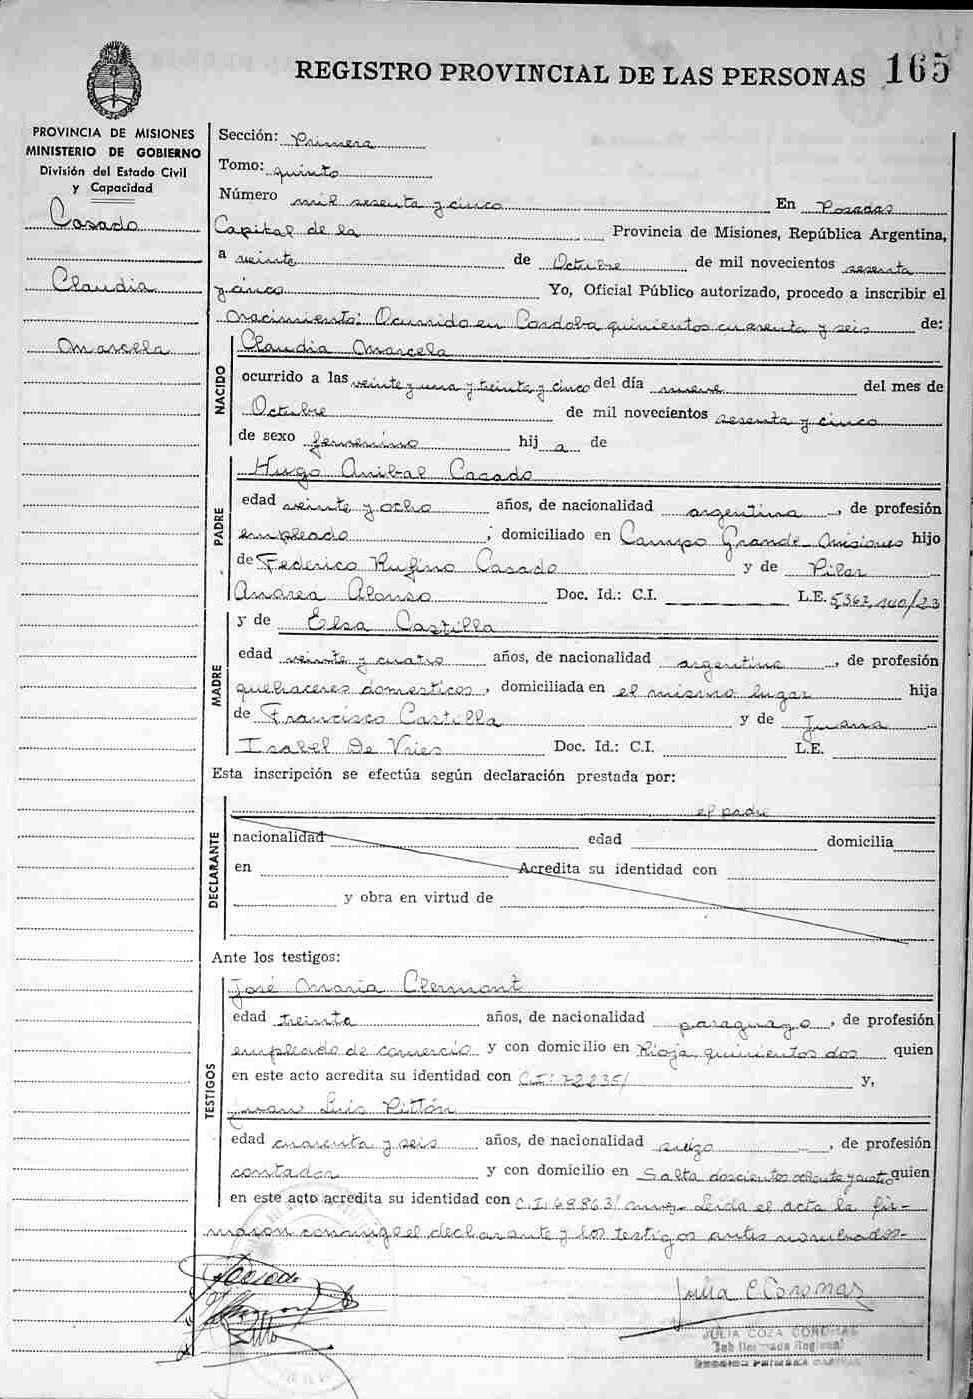 REGISTRO PROVINCIAL DE LAS PERSONAS 165
PROVINCIA DE MISIONES
MINISTERIO DE GOBIERNO
División del Estado Civil
y Capacidad
Casado
Claudia
Marcela
Sección: Primera
Tomo: quinto
Número mil sesenta y cinco En Posadas
Capital de la Provincia de Misiones, República Argentina,
a veinte de Octubre de mil novecientos sesenta
y cinco Yo, Oficial Público autorizado, procedo a inscribir el
Nacimiento: Ocurrido en Cordoba quinientos cuarenta y seis de:
NACIDO
Claudia Marcela
ocurrido a las veinte y una y treinta y cinco del día nueve del mes de
Octubre de mil novecientos sesenta y cinco
de sexo femenino hij a de
PADRE
Hugo Anibal Casado
edad veinte y ocho años, de nacionalidad argentina, de profesión
empleado; domiciliado en Campo Grande Misiones hijo
de Federico Rufino Casado y de Pilar
Andrea Alonso Doc. Id.: C.I. L.E. 5362.440/23
y de Elsa Castilla
MADRE
edad veinte y cuatro años, de nacionalidad argentina, de profesión
quehaceres domesticos, domiciliada en el mismo lugar hija
de Francisco Castilla y de Juana
Isabel De Vries Doc. Id.: C.I. L.E.
Esta inscripción se efectúa según declaración prestada por:
DECLARANTE
el padre
nacionalidad edad domicilia
en Acredita su identidad con
y obra en virtud de
Ante los testigos:
TESTIGOS
José Maria Clermont
edad treinta años, de nacionalidad paraguayo, de profesión
empleado de comercio y con domicilio en Rioja quinientos dos quien
en este acto acredita su identidad con C.I: 72235/ y,
Juan Luis Pittón
edad cuarenta y seis años, de nacionalidad suizo, de profesión
contador y con domicilio en Salta doscientos ochenta y cuatro quien
en este acto acredita su identidad con C.I. 69863/ Leida el acta la fir-
maron conmigo el declarante y los testigos antes nombrados-
Julia C. Coronas
JULIA COZA CORONAS